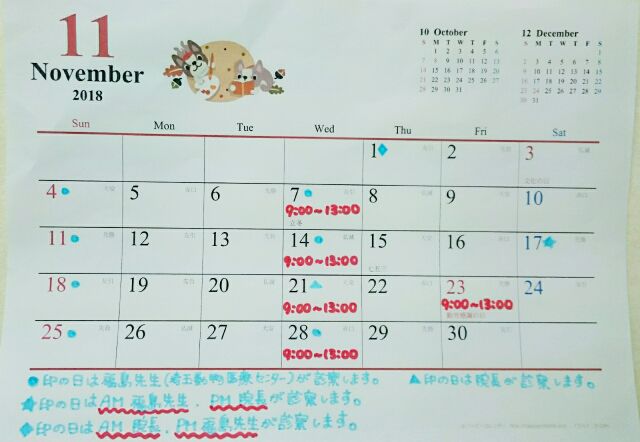 11
November
2018
10 October
S M T W T F S
1 2 3 4 5 6
7 8 9 10 11 12 13
14 15 16 17 18 19 20
21 22 23 24 25 26 27
28 29 30 31
12 December
S M T W T F S
1
2 3 4 5 6 7 8
9 10 11 12 13 14 15
16 17 18 19 20 21 22
23 24 25 26 27 28 29
30 31
Sun Mon Tue Wed Thu Fri Sat
1◆ 2 3
文化の日
4● 5 6 7● 8 9 10
9:00~13:00
立冬
11● 12 13 14● 15 16 17★
9:00~13:00
七五三
18● 19 20 21▲ 22 23 24
9:00~13:00 9:00~13:00
勤労感謝の日
25● 26 27 28● 29 30
9:00~13:00
●印の日は福島先生(埼玉動物医療センター)が診察します。 ▲印の日は院長が診察します。
★印の日はAM 福島先生、PM 院長が診察します。
◆印の日はAM 院長、PM 福島先生が診察します。